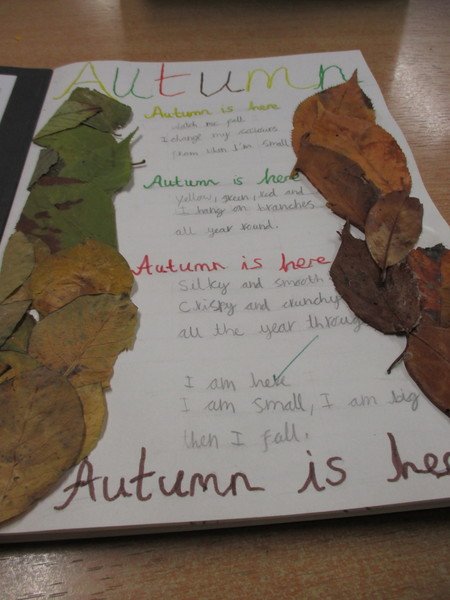 Autumn
Autumn is here
watch me fall
I change my colours
from when I'm small
Autumn is here
yellow, green, red and
I hang on branches
all year round.
Autumn is here
Silky and smooth
Crispy and crunchy
all the year through
I am here
I am small, I am big
then I fall.
Autumn is here